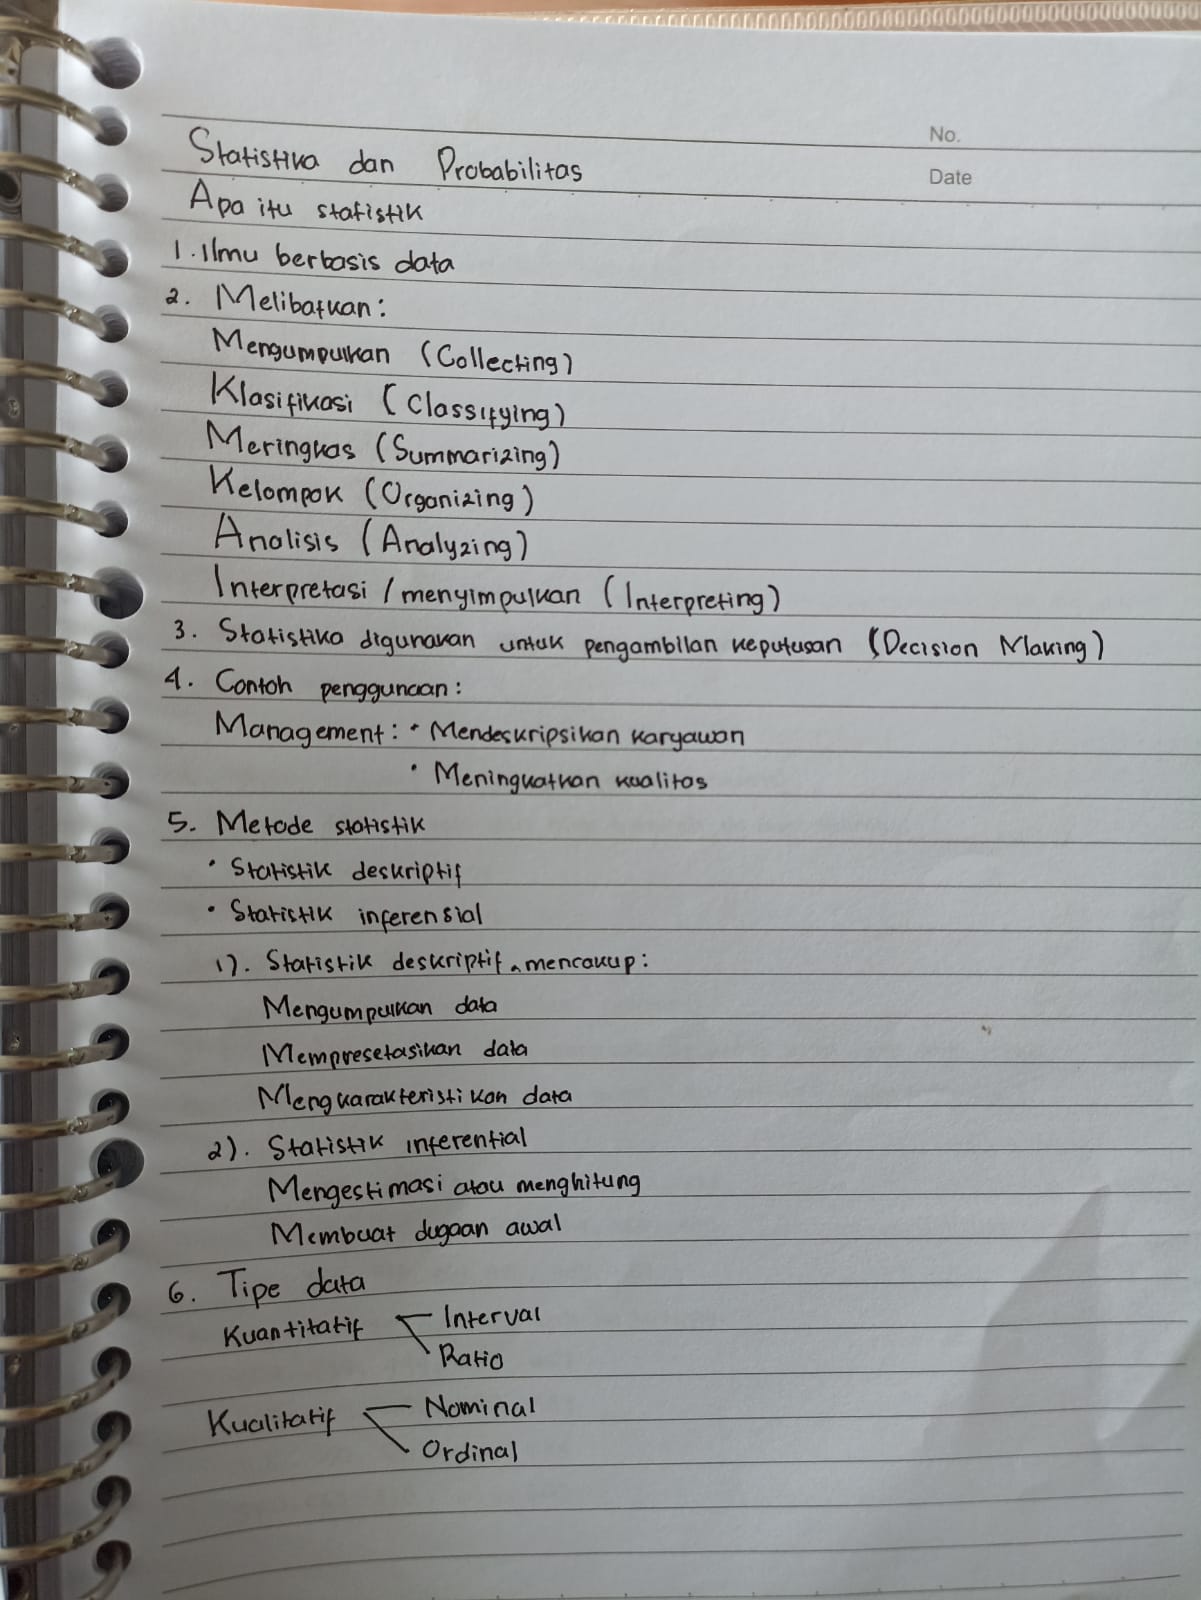 No.
Date
Statistika dan Probabilitas
Apa itu statistik
1. Ilmu berbasis data
2. Melibatkan:
Mengumpulkan (Collecting)
Klasifikasi (Classifying)
Meringkas (Summarizing)
Kelompok (Organizing)
Analisis (Analyzing)
Interpretasi / menyimpulkan (Interpreting)
3. Statistika digunakan untuk pengambilan keputusan (Decision Making)
4. Contoh penggunaan:
Management: • Mendeskripsikan karyawan
• Meningkatkan kualitas
5. Metode statistik
• Statistik deskriptif
• Statistik inferensial
1). Statistik deskriptif, mencakup:
Mengumpulkan data
Mempresetasikan data
Mengkarakteristikan data
2). Statistik inferential
Mengestimasi atau menghitung
Membuat dugaan awal
6. Tipe data
Kuantitatif Interval
Ratio
Kualitatif Nominal
Ordinal